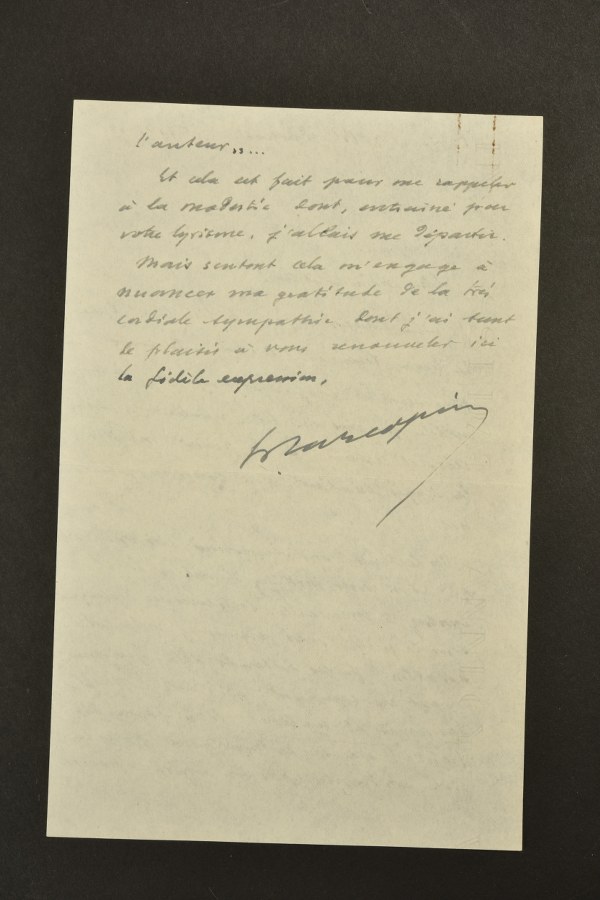 l'auteur.....
Et cela est fait pour me rappeler
à la modestie dont, entraîné par
votre lyrisme, j'allais me départir.
Mais surtout cela m'engage à
nuancer ma gratitude de la très
cordiale sympathie dont j'ai tant
de plaisir à vous renouveler ici
la fidèle expression.